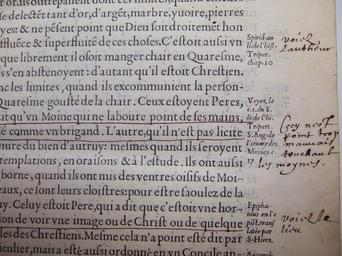 se delectẽt d'or, d'argẽt, marbre, yuoire, pierres
uyes & ne pẽsent point que Dieu soit droitemẽt hon
ffluẽce & superfluité de ces choses. C'estoit aussi vn
s'il osoit manger chair en Quaresme,
s'en abstenoyent : d'autant qu'il estoit Chrestien.
nc les limites, quand ilz excommunient la person-
Quaresme gousté de la chair. Ceux estoyent Peres,
it qu'vn Moine qui ne laboure point de ses mains,
é comme vn brigand. L'autre, qu'il n'est pas licite
iure du bien d'autruy: mesmes quand ilz seroyent
templations, en oraisons & à l'estude. Ilz ont aussi
borne, quand ilz ont mis des ventres oisifz de Moi-
eaux, ce sont leurs cloistres: pour estre saoulez de la
uy. Celuy estoit Pere, qui a dit que c'estoit vne hor-
ion de voir vne image ou de Christ ou de quelque
les des Chrestiens. Mesme cela n'a point esté dit par
iculier, mais a esté aussi ordonné en vn Concile an
Spirid. au
Tripart.
chap. 10
Voyez le
ct. 1. du 8.
Tripart.
S. Aug. de
Moines. c.
17
Epipha-
nius en l'e
pist. transl
latée par
S. Hiero.
voiez
Lautheur
Cecy nest
point trop
mauuais
touchant
les moynes.
voiez le
lieu